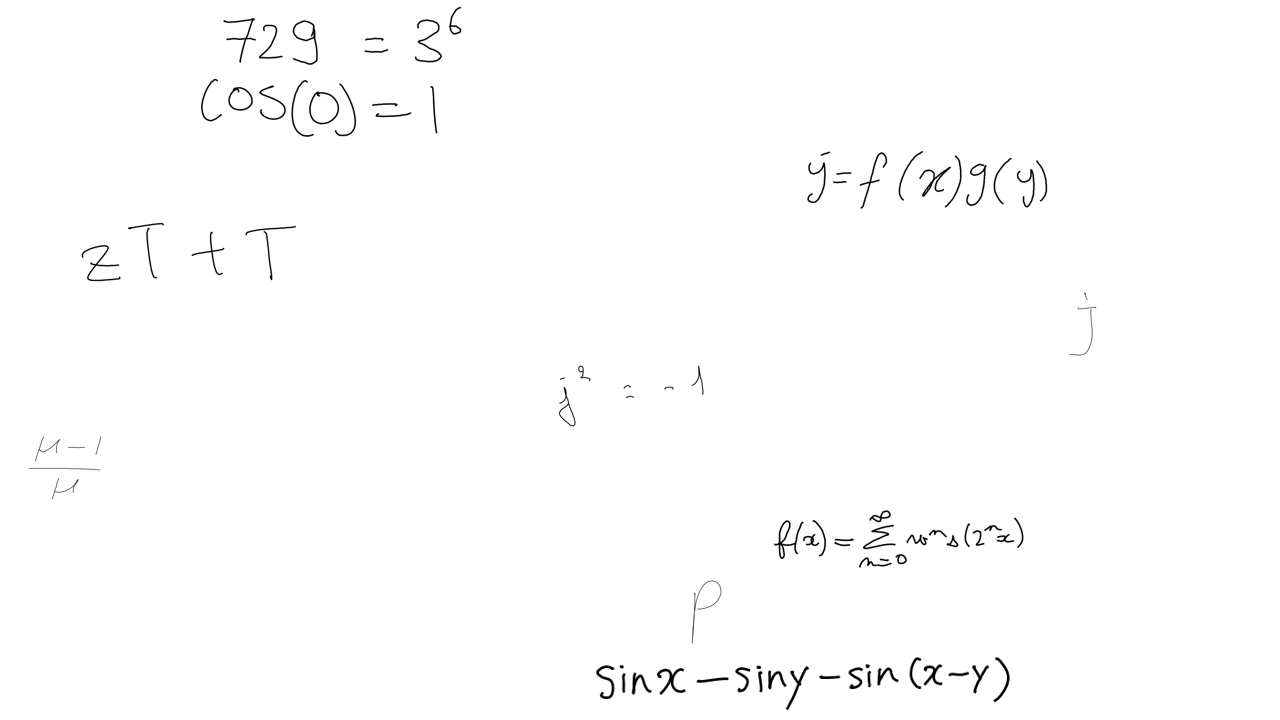 729 = 3⁶
cos(0) = 1
ẏ = f(x)g(y)
zT + T
j
j² = -1
μ-1
μ
f(x) = ∑_{n=0}^{∞} wⁿs(2ⁿx)
ρ
sin x - sin y - sin (x-y)